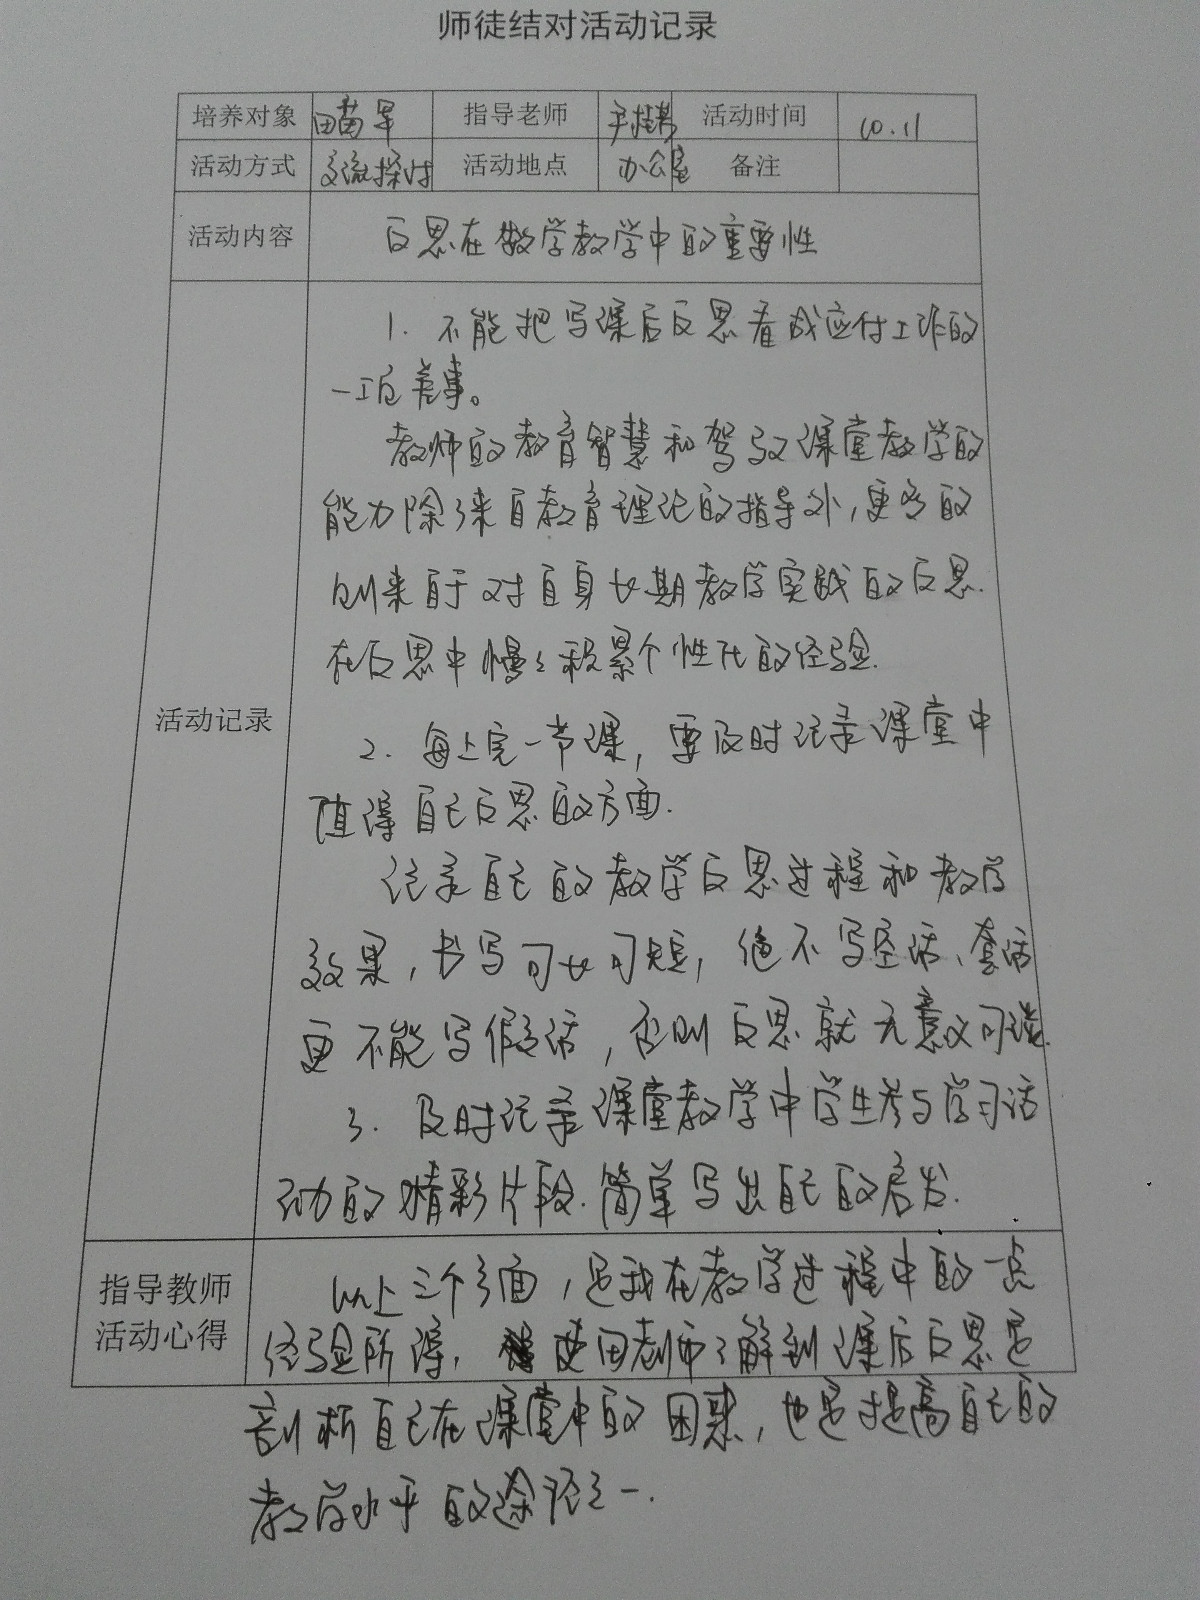 师徒结对活动记录
培养对象 田苗军 指导老师 活动时间 10.11
活动方式 交流探讨 活动地点 办公室 备注
活动内容 反思在数学教学中的重要性
1. 不能把写课后反思看成应付工作的
一项差事。
教师的教育智慧和驾驭课堂教学的
能力除了来自教育理论的指导外,更多的
则来自于对自身长期教学实践的反思.
在反思中慢慢积累个性化的经验.
活动记录
2. 每上完一节课,要及时记录课堂中
值得自己反思的方面.
记录自己的教学反思过程和教学
效果,书写可长可短,绝不写空话、套话
更不能写假话,否则反思就无意义可谈.
3. 及时记录课堂教学中学生参与学习活
动的精彩片段.简单写出自己的启发.
指导教师
活动心得
以上三个方面,是我在教学过程中的一点
经验所得,使田老师了解到课后反思是
剖析自己在课堂中的困惑,也是提高自己的
教学水平的途径之一.